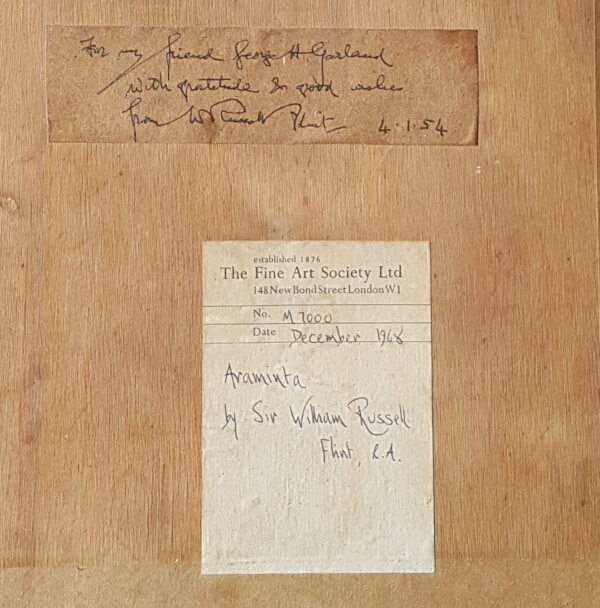 For my friend George H Garland
with gratitude & good wishes
from W Russell Flint 4.1.54
established 1876
The Fine Art Society Ltd
148 New Bond Street London W1
No. M7000
Date December 1968
Araminta
by Sir William Russell
Flint, R.A.